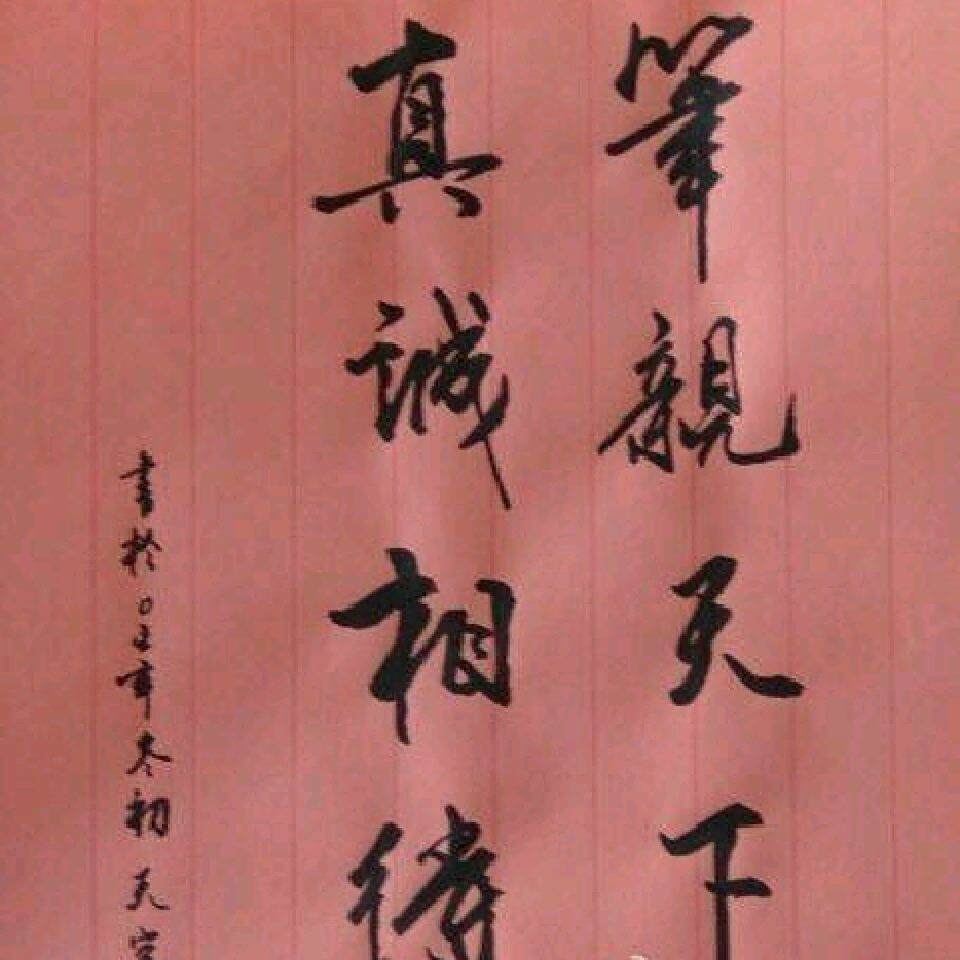 筆親天下
真誠相待
書於0五年冬初天